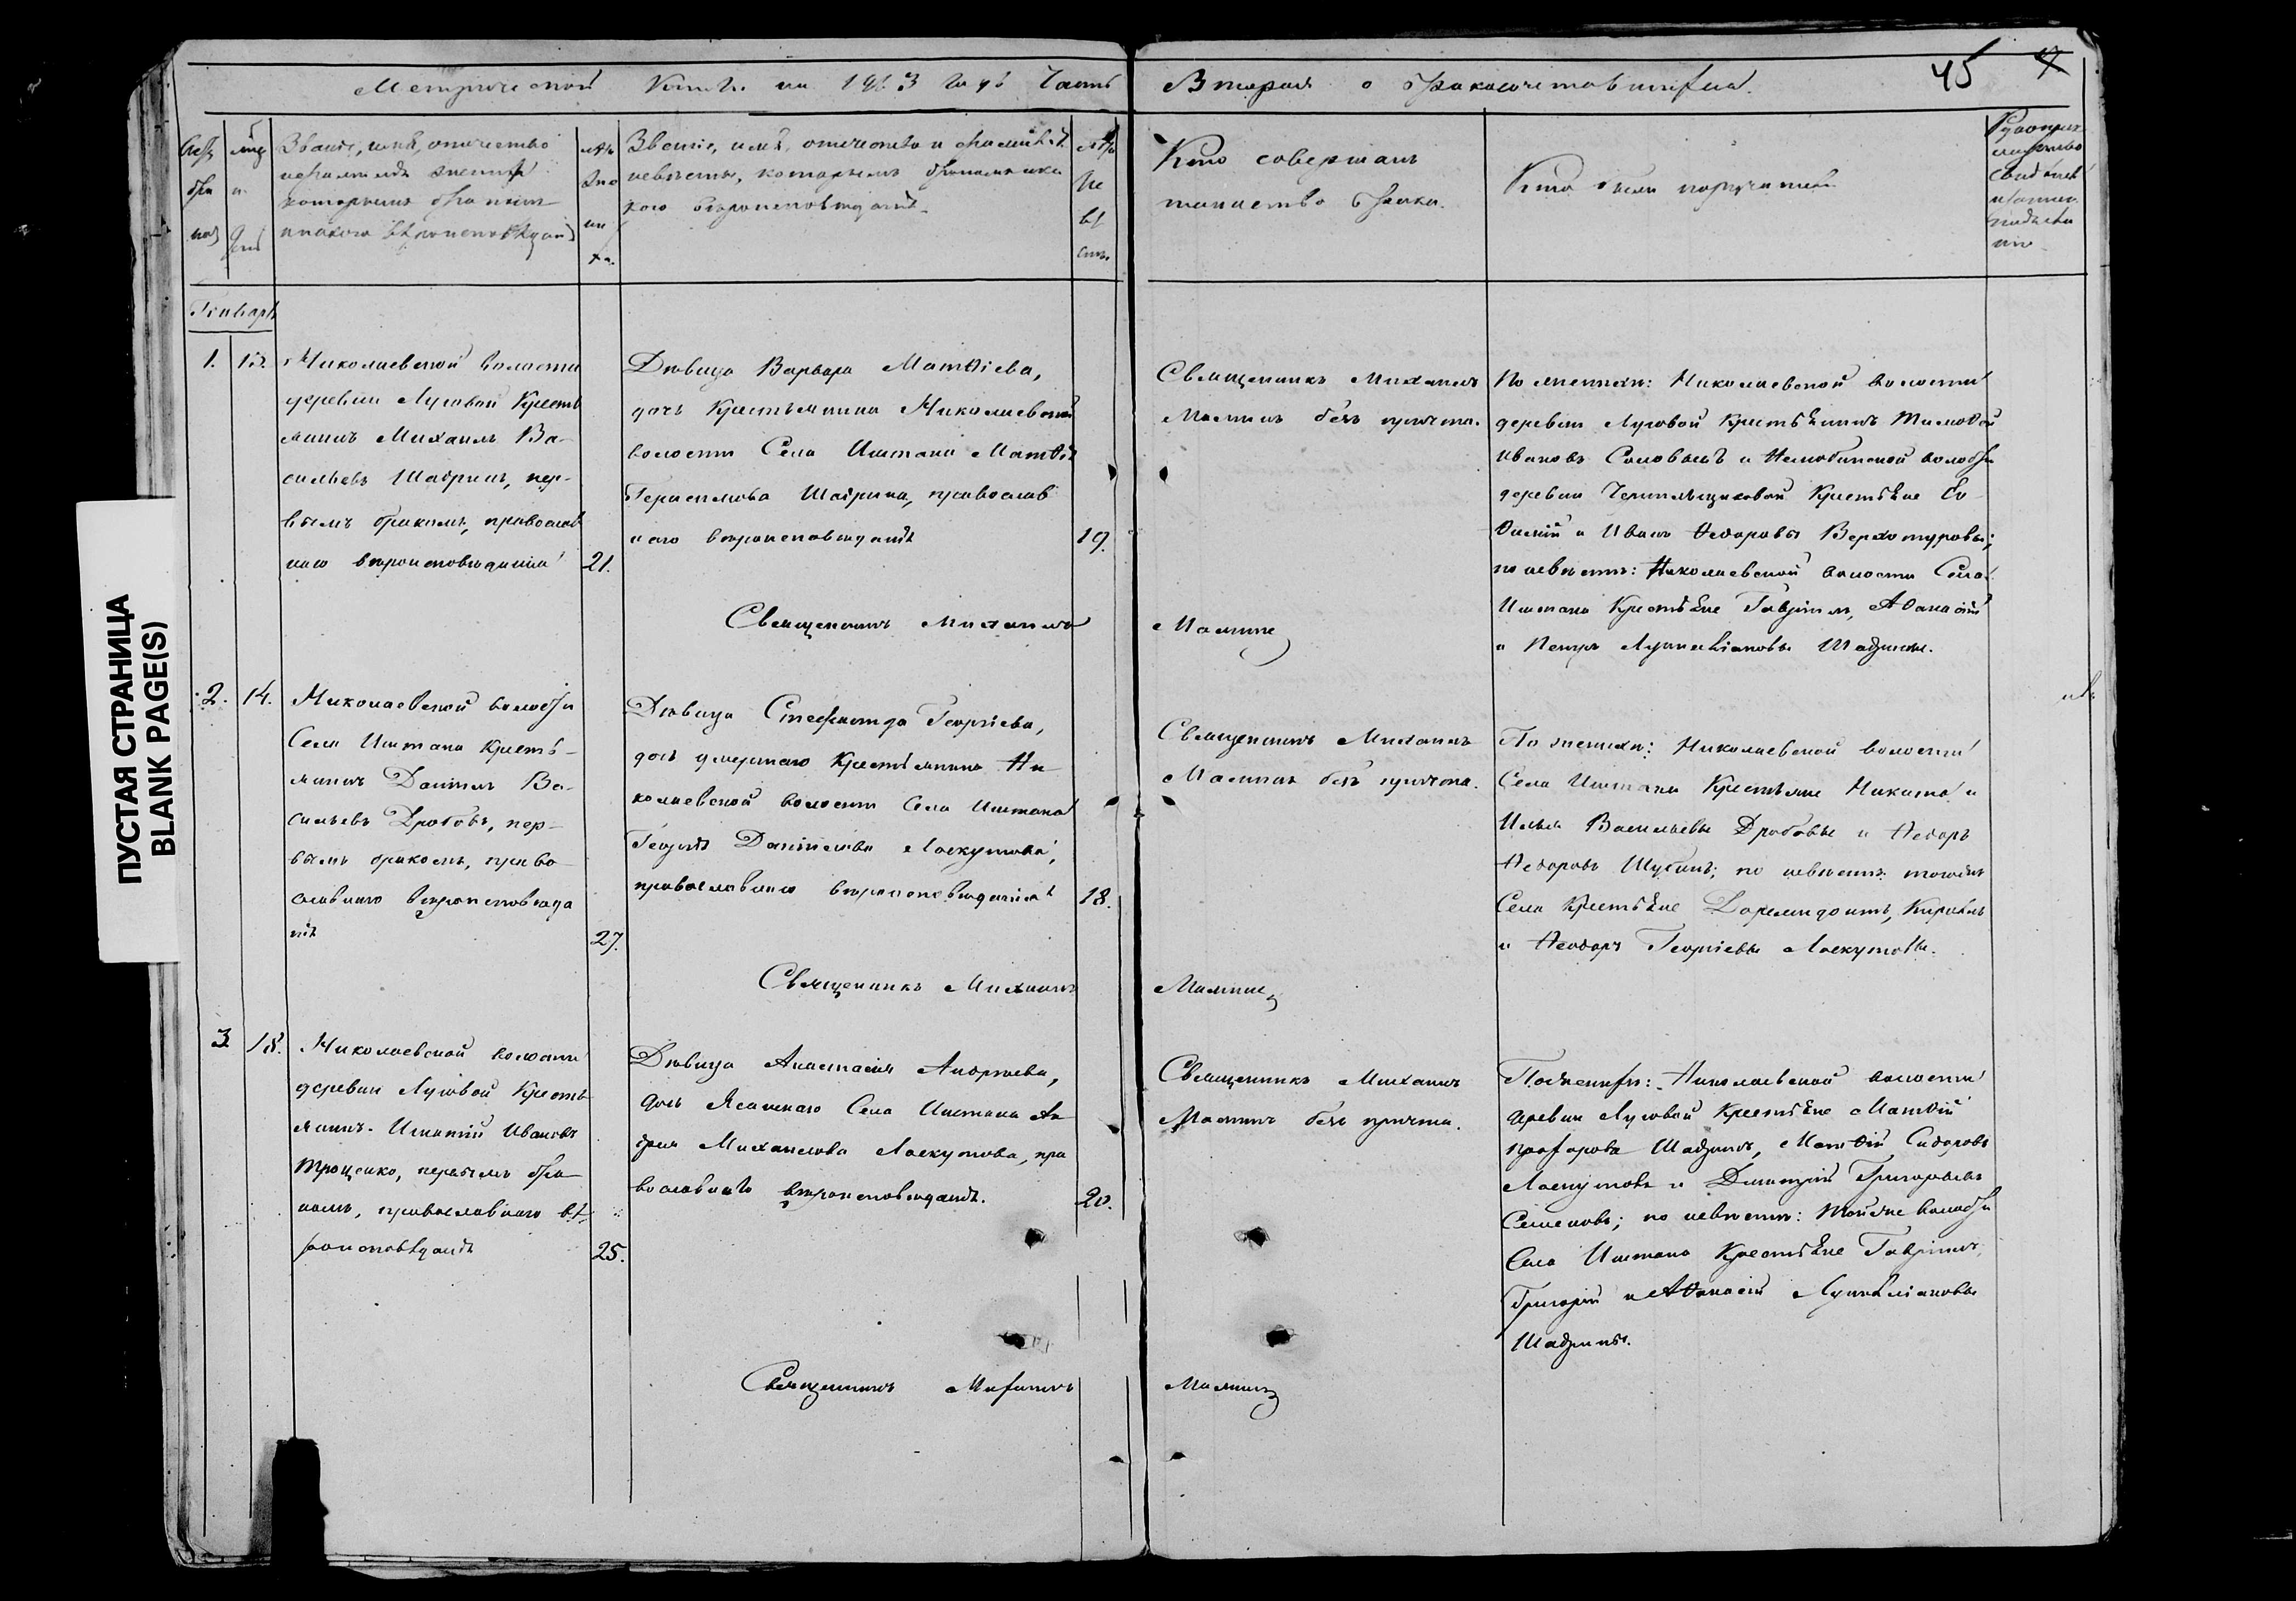 Метрической Книги на 1913 годъ Часть
Вторая о бракосочетавшихся.
45
4
Счетъ браковъ
Мѣсяцъ и день
Званіе, имя, отчество
и фамилія жениха
которымъ бракомъ
и какого вѣроисповѣданія
Лѣта жениха.
Званіе, имя, отчество и фамилія
невѣсты, которымъ бракомъ и ка
кого вѣроисповѣданія.
Лѣта невѣсты.
Кто совершалъ
таинство брака.
Кто были поручители
Январь
1.
13.
Николаевской волости
деревни Луговой Кресть
янинъ Михаилъ Ва-
сильевъ Шадринъ, пер-
вымъ бракомъ, православ
наго вѣроисповѣданія
21.
Дѣвица Варвара Матѳіева,
дочь Крестьянина Николаевской
волости Села Иштана Матѳія
Герасимова Шадрина, православ
наго вѣроисповѣданія
19.
Священникъ Михаилъ
Маминъ безъ причта.
По женихѣ: Николаевской волости
деревни Луговой Крестьянинъ Тимоѳей
Ивановъ Соловьевъ и волости
деревни Крестьяне Ев
ѳимій и Иванъ Ѳедоровы Верхотуровы;
по невѣстѣ: Николаевской волости Села
Иштана Крестьяне Гавріилъ, Аѳанасій
и Петръ Шадрины.
Священникъ Михаилъ
Маминъ
2.
14.
Николаевской волости
Села Иштана Кресть-
янинъ Даніилъ Ва-
сильевъ Дробовъ, пер-
вымъ бракомъ, право
славнаго вѣроисповѣда
нія
27.
Дѣвица Стефанида Георгіева,
дочь умершаго Крестьянина Ни
колаевской волости Села Иштана
Георгія Даніилова Лоскутова,
православнаго вѣроисповѣданія
18.
Священникъ Михаилъ
Маминъ безъ причта.
По женихѣ: Николаевской волости
Села Иштана Крестьяне Никита и
Илья Васильевы Дробовы и Ѳедоръ
Ѳедоровъ Шубинъ; по невѣстѣ: тогоже
Села Крестьяне Дормидонтъ, Кириллъ
и Ѳеодоръ Георгіевы Лоскутовы.
Священникъ Михаилъ
Маминъ
3
18.
Николаевской волости
деревни Луговой Кресть
янинъ Игнатій Ивановъ
Троценко, первымъ бра
комъ, православнаго вѣ
роисповѣданія
25.
Дѣвица Анастасія Андреева,
дочь Ясашнаго Села Иштана Ан
дрея Михаилова Лоскутова, пра
вославнаго вѣроисповѣданія.
20.
Священникъ Михаилъ
Маминъ безъ причта.
По женихѣ: Николаевской волости
деревни Луговой Крестьяне Матѳій
Прохоровъ Шадринъ, Матѳій Сидоровъ
Лоскутовъ и Димитрій Григорьевъ
Семеновъ; по невѣстѣ: тойже волости
Села Иштана Крестьяне Гавріилъ,
Григорій и Аѳанасій
Шадрины.
Священникъ Михаилъ
Маминъ
ПУСТАЯ СТРАНИЦА
BLANK PAGE(S)